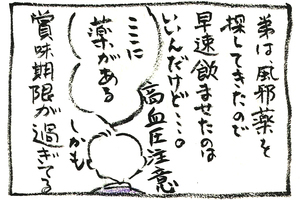 弟は、風邪薬を
探してきたので
早速飲ませたのは
いいんだけど…。
高血圧注意
ここに
薬がある
しかも
賞味期限が過ぎてる